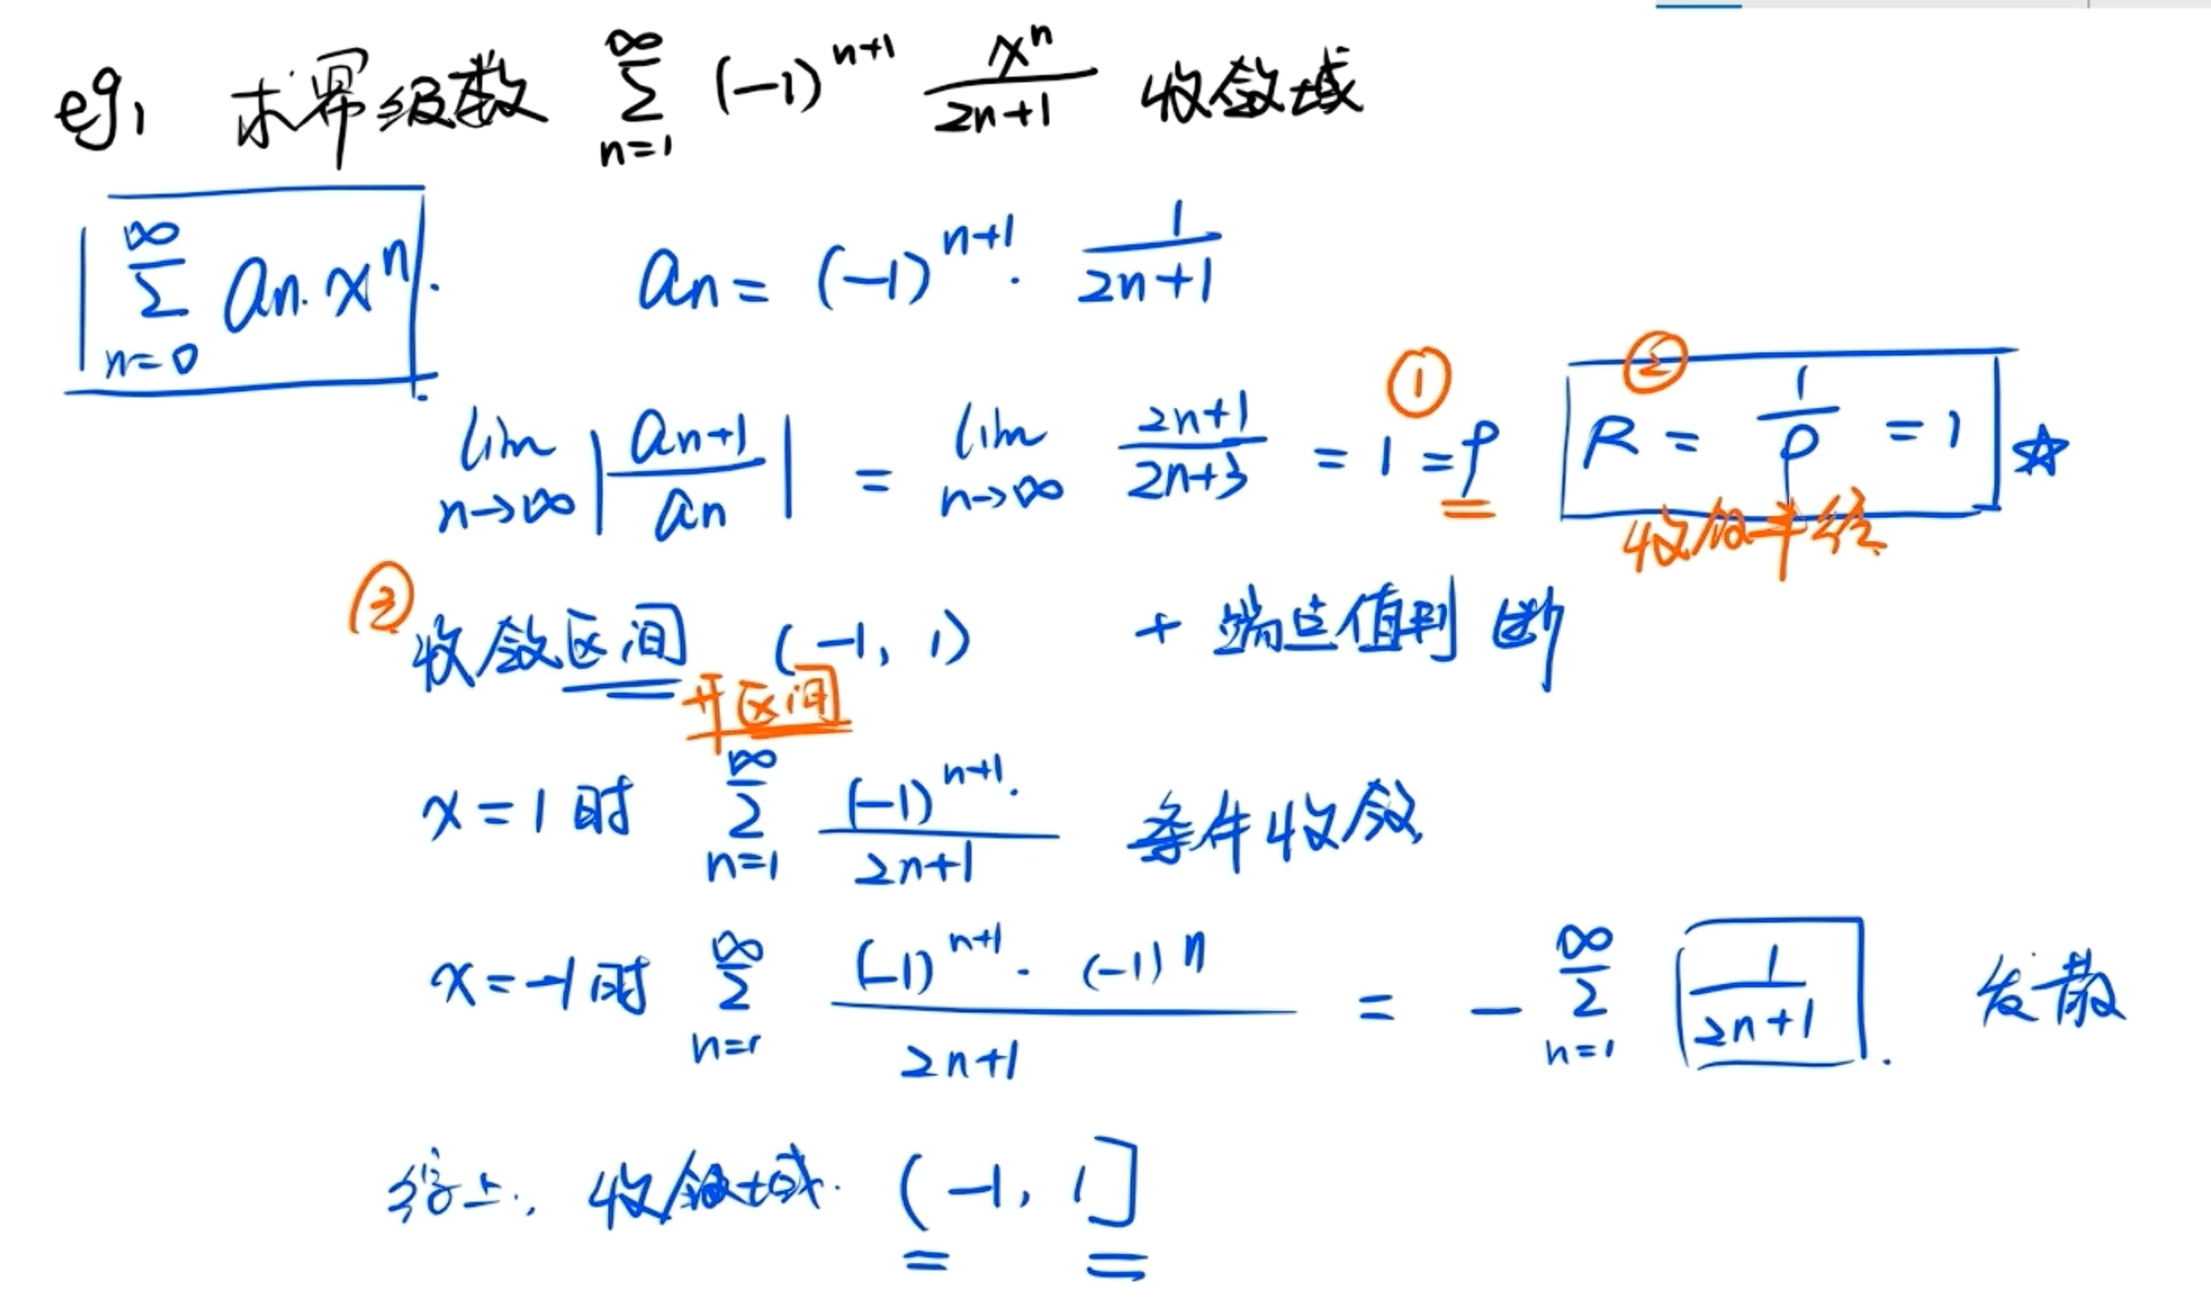 eg1 求幂级数 ∑_{n=1}^{∞} (-1)^{n+1} x^n/(2n+1) 收敛域
∑_{n=0}^{∞} an·x^n. an = (-1)^{n+1}· 1/(2n+1)
lim_{n→∞} |an+1/an| = lim_{n→∞} (2n+1)/(2n+3) = 1 = ρ ① ② R = 1/ρ = 1 ☆
收敛半径
③ 收敛区间 (-1, 1) + 端点值判断
开区间
x=1时 ∑_{n=1}^{∞} (-1)^{n+1}·/(2n+1) 条件收敛
x=-1时 ∑_{n=1}^{∞} (-1)^{n+1}·(-1)^n/(2n+1) = -∑_{n=1}^{∞} 1/(2n+1). 发散
综上, 收敛域. (-1, 1]